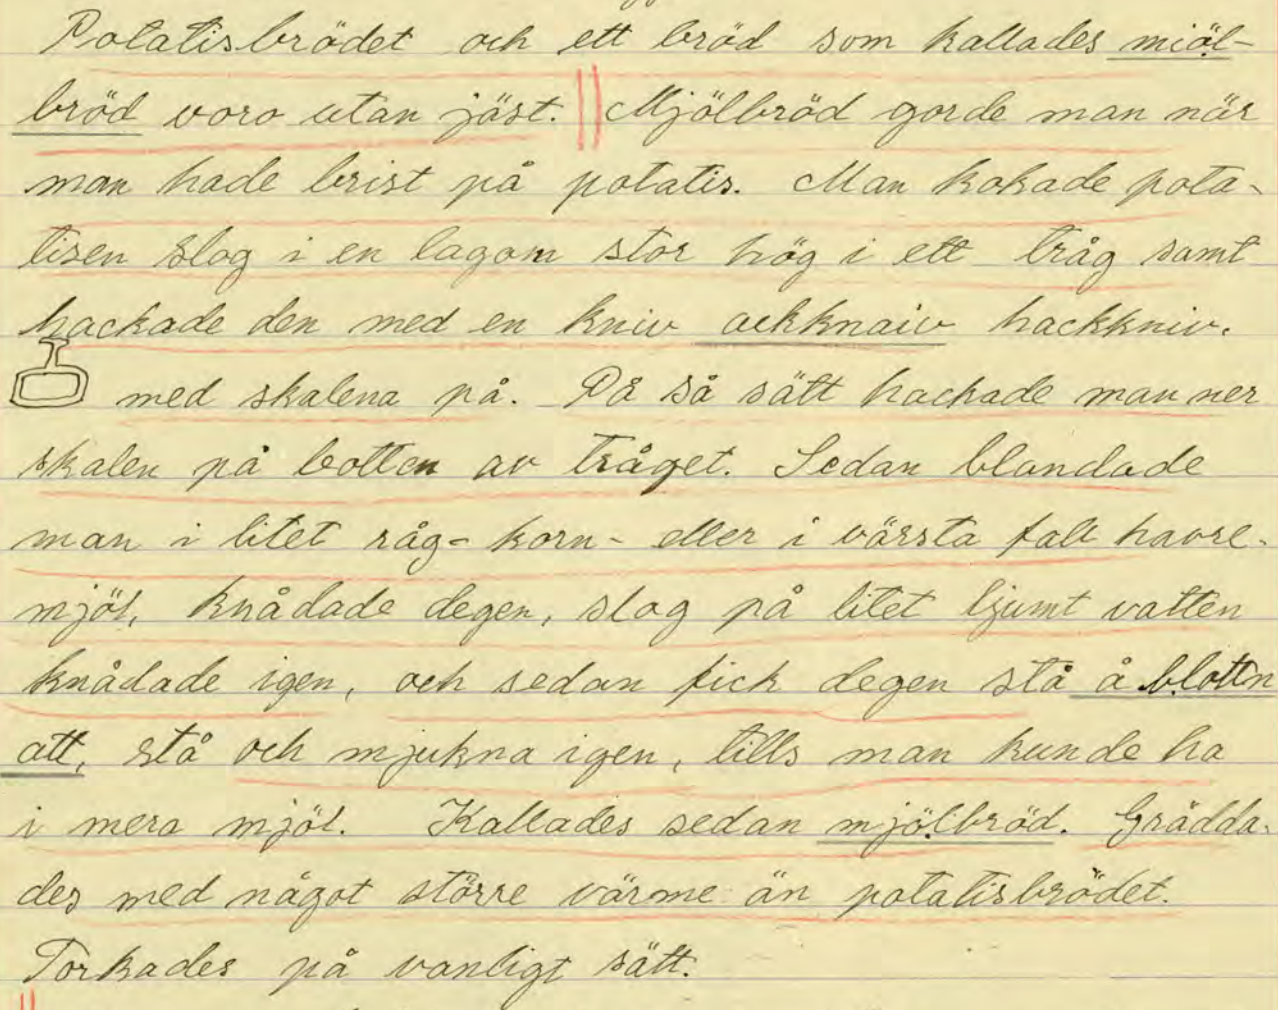 Potatisbrödet och ett bröd som kallades miöl-
bröd voro utan jäst. Mjölbröd gorde man när
man hade brist på potatis. Man kokade pota-
tisen slog i en lagom stor hög i ett tråg samt
hackade den med en kniv ackknaiv hackkniv.
med skalena på. På så sätt hackade man ner
skalen på botten av tråget. Sedan blandade
man i litet råg- korn- eller i värsta fall havre-
mjöl, knådade degen, slog på litet ljumt vatten
knådade igen, och sedan fick degen stå å blottn
att, stå och mjukna igen, tills man kunde ha
i mera mjöl. Kallades sedan mjölbröd. Grädda-
des med något större värme än potatisbrödet.
Torkades på vanligt sätt.